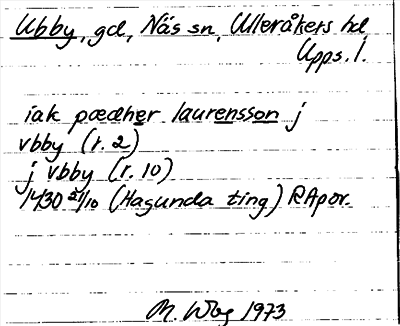 Ubby, gd, Näs sn, Ulleråkers hd
Upps. l.
iak pædher laurensson j
vbby (r. 2)
j vbby (r. 10)
1430 21/10 (Hagunda ting) RApor.
1973